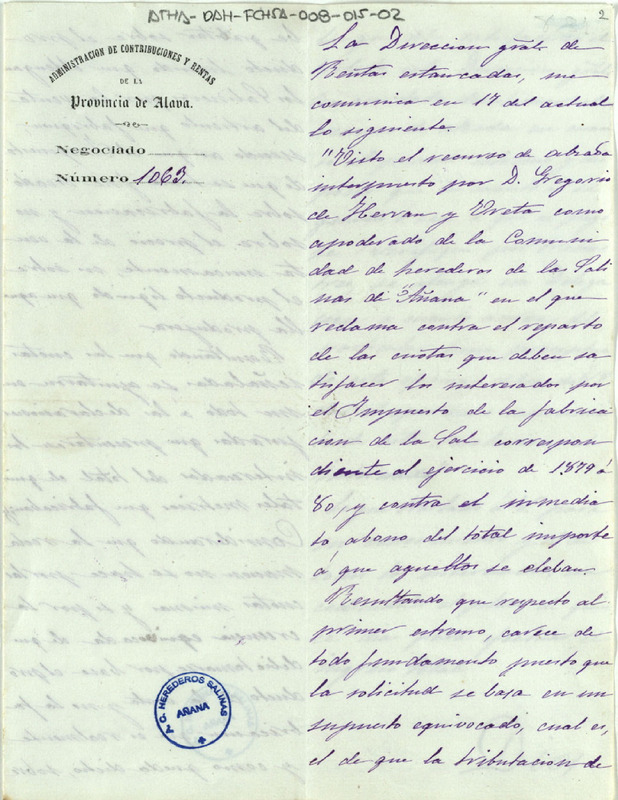 ATHA-DAH-FCHSA-008-015-02
2
ADMINISTRACION DE CONTRIBUCIONES Y RENTAS
DE LA
Provincia de Alava.
Negociado
Número 1063.
La Direccion gral. de
Rentas estancadas, me
comunica en 17 del actual
lo siguiente.
"Visto el recurso de alzada
interpuesto por D. Gregorio
de Herran y Ureta como
apoderado de la Comuni
dad de herederos de las Sali
nas de "Añana" en el que
reclama contra el reparto
de las cuotas que deben sa
tisfacer los interesados por
el Impuesto de la fabrica
cion de la Sal correspon
diente al ejercicio de 1879 á
80, y contra el inmedia
to abono del total importe
á que aquellos se eleban.
Resultando que respecto al
primer estremo, carece de
todo fundamento puesto que
la solicitud se basa en un
supuesto equivocado, cual es,
el de que la tributacion de
A.C. HEREDEROS SALINAS
AÑANA